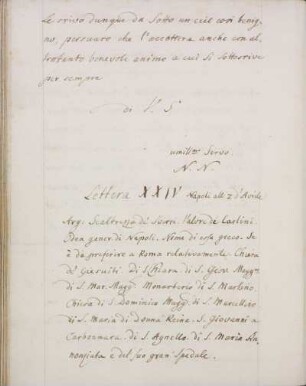 La veriso dunque da Sotto un ciel così benig
no, persuaso che l'accetterà anche con al,
trotanto benevole animo a cui si sottoscrive
per sempre
di V. S.
umilmo Servo
N. N.
Lettera XXIV Napoli alli 2 d'Aprile
di Scirri. Valori de Cartini.
Idea gener. di Napoli. Nona di cosa greca. Se
da preferire a Roma relativamente. Chiesa
de' Giesuiti. di S. Chiara di S. Giov. Magg.e
di S. Mar. Magg. Monasterio di S. Martino.
Chiesa di S. Dominico Magg. di S. Marcellino
di S. Maria di Donna Reina. S. Giovanni a
Carbonara. di S. Agnello. di S. Maria An,
nonziata e del suo gran Spedale.